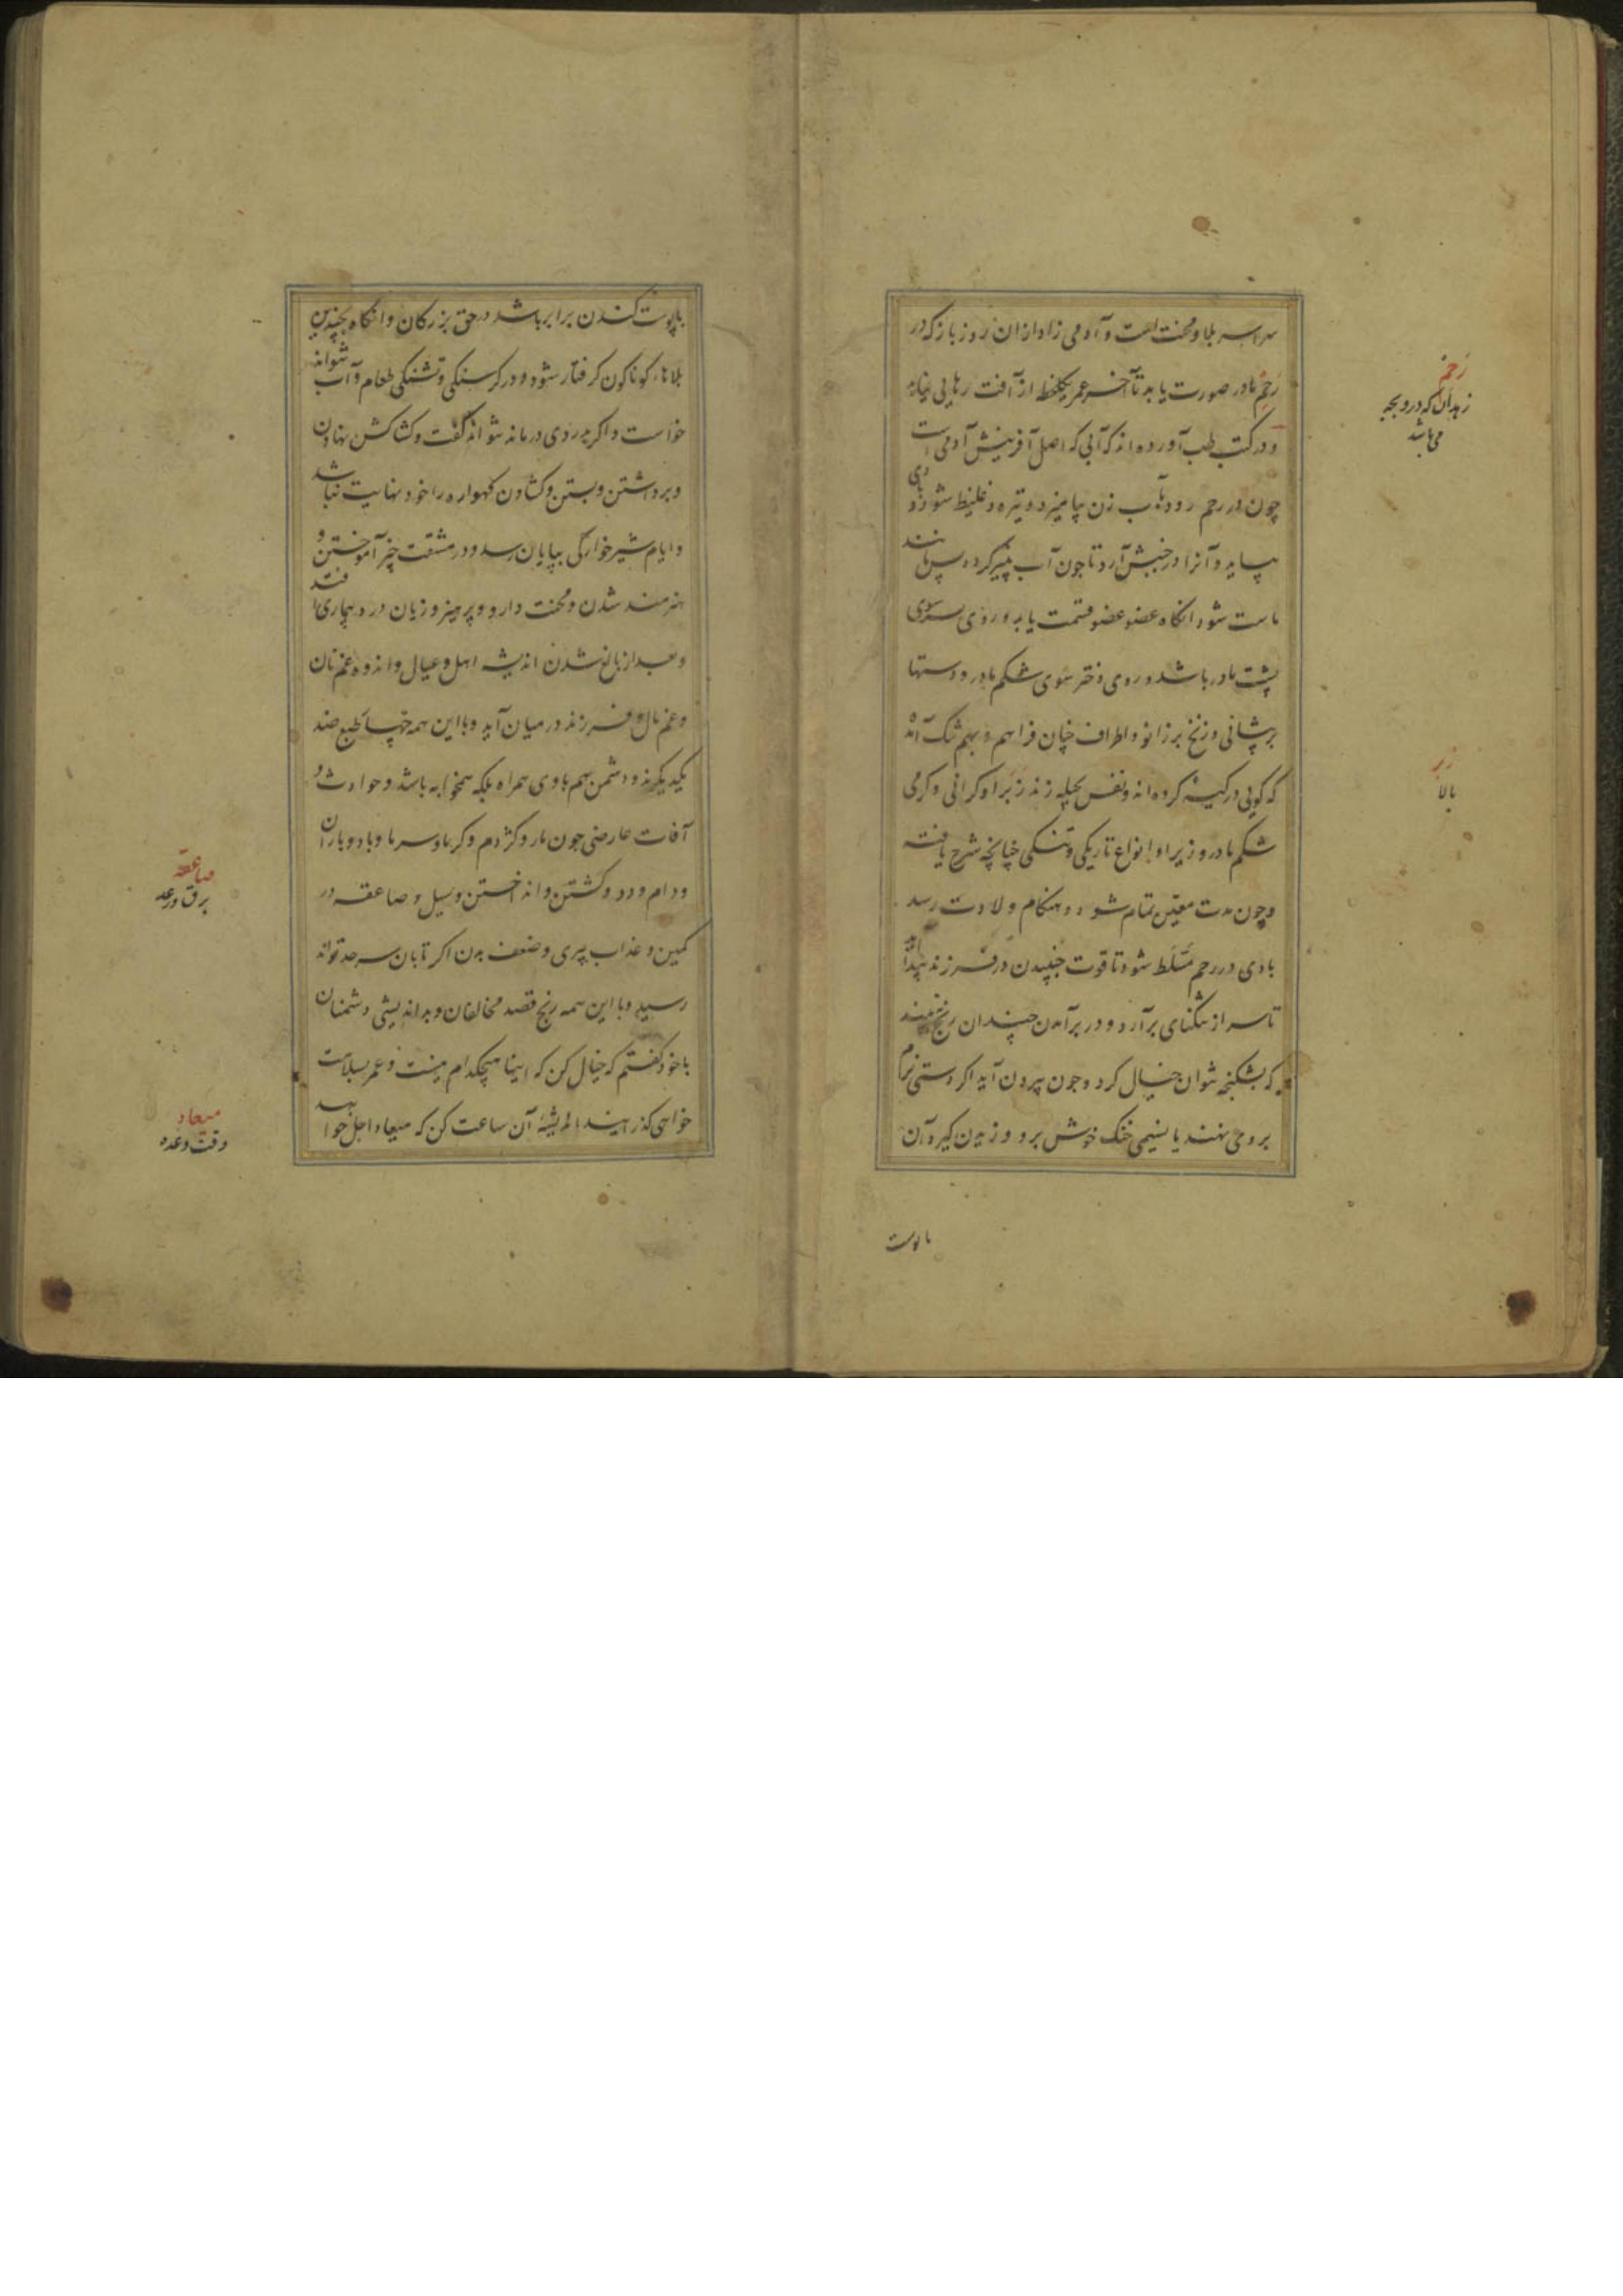 سراسر بلا و محنت است و آدمی زاد از ان روز باز که در
رَحِم مادر صورت یابد تا آخر عمر یکلحظه از آفت رهایی نیابد
و در کتب طب آورده اند که آبی که اصل آفرینش آدمی است
چون در رحم رود بآب زن بیامیزد و تیره و غلیظ شود و بادی
بیاید و آنرا در جنبش آرد تا جون آب پنیر کردد پس مانند
ماست شود انکاه عضو عضو قسمت یابد و روی پسر سوی
پشت مادر باشد و روی دختر سوی شکم مادر و دستها
بر پشانی و زنخ بر زانو و اطراف چنان فراهم و بهم تنک آمده
که کویی در کیسه کرده اند و نفس بحیله زند زبر او کرانی و کرمی
شکم مادر و زیر او انواع تاریکی و تنکی چنانچه شرح یافته
و چون مدت معیّن تمام شود و هنکام ولادت رسد
بادی در رحم مسَلّط شود تا قوت جنبیدن در فرزند پیدا آید
تا سر از تنکنای برآرد و در برآمدن چندان رنج بیند
که بشکنجه نتوان خیال کرد و جون بیرون آید اکر دستی نرم
بر وی نهند یا نسیمی خنک خوش برو وزیدن کیرد آن
با پوست
رَحِم
زهدان که درو بچه
می باشد
زبر
بالا
با پوست کندن برابر باشد در حق بزرکان و انکاه بچندین
بلاهاء کوناکون کرفتار شود و در کرسنکی و تشنکی طعام و آب نتواند
خواست و اکر بدردی درماند نتواند کفت و کشاکش نهادن
و برداشتن و بستن و کشادن کهواره را خود نهایت نباشد
و ایام شیرخوارکی بپایان رسد و در مشقت چیز آموختن و
هنرمند شدن و محنت دارو و پرهیز و زیان درد و بیماری افتد
و بعد از بالغ شدن اندیشه اهل و عیال و اندوه غم نان
و غم مال و فرزند در میان آید و با این همه چهار طبع ضد
یکدیکرند و دشمن هم با وی همراه بلکه همخوابه باشد و حوادث و
آفات عارضی جون مار و کژدم و کرما و سرما و باد و باران
و دام و دد و کشتن و انداختن و سیل و صاعقه در
کمین و عذاب پیری و ضعف بدن اکر تا بان سرحد تواند
رسید و با این همه رنج قصد مخالفان و بداندیشی دشمنان
با خود کفتم که خیال کن که اینها هیچکدام نیست و عمر بسلامت
خواهی کذرانید اندیشهٔ آن ساعت کن که میعاد اجل خواهد
صاعقه
برق و رعد
میعاد
وقت وعده